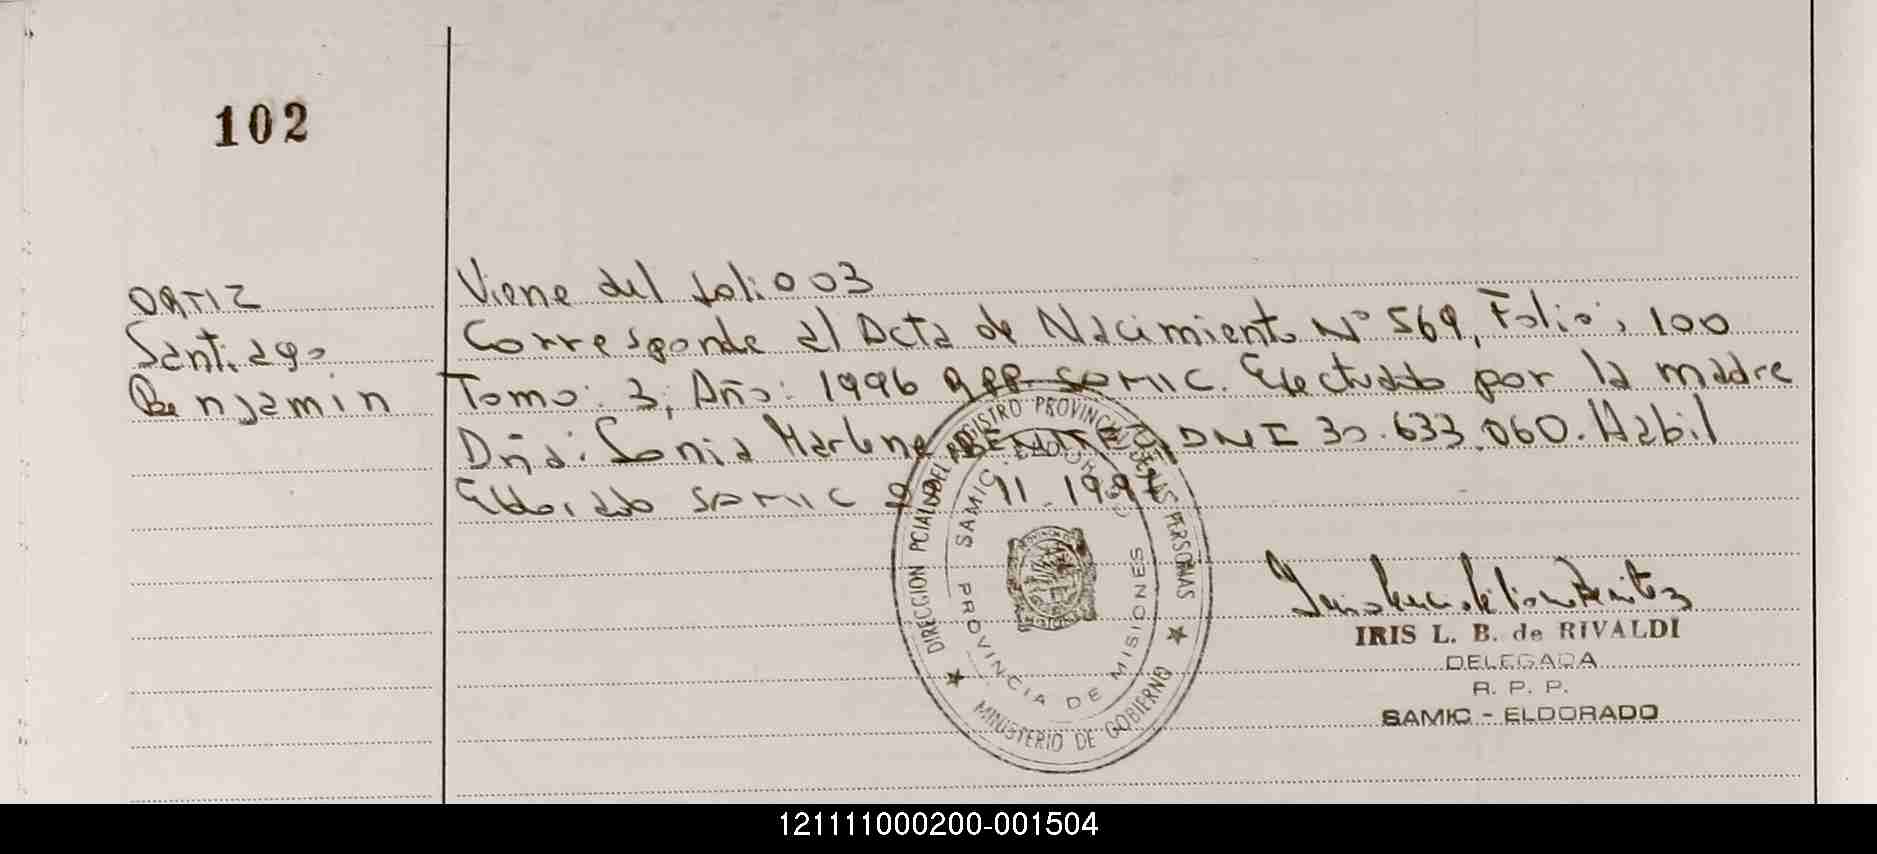 102
ORTIZ
Santiago
Benjamin
Viene del folio 03
Corresponde al Acta de Nacimiento Nº 569, Folio: 100
Tomo: 3; Año: 1996 RPP SAMIC. Efectuado por la madre
Dña: Sonia Marlene DNI 30.633.060. Habil
Eldorado SAMIC 11.1997
DIRECCION PCIAL DEL REGISTRO PROVINCIAL DE LAS PERSONAS
MINISTERIO DE GOBIERNO
SAMIC ELDORADO
PROVINCIA DE MISIONES
IRIS L. B. de RIVALDI
DELEGADA
R. P. P.
SAMIC - ELDORADO
121111000200-001504